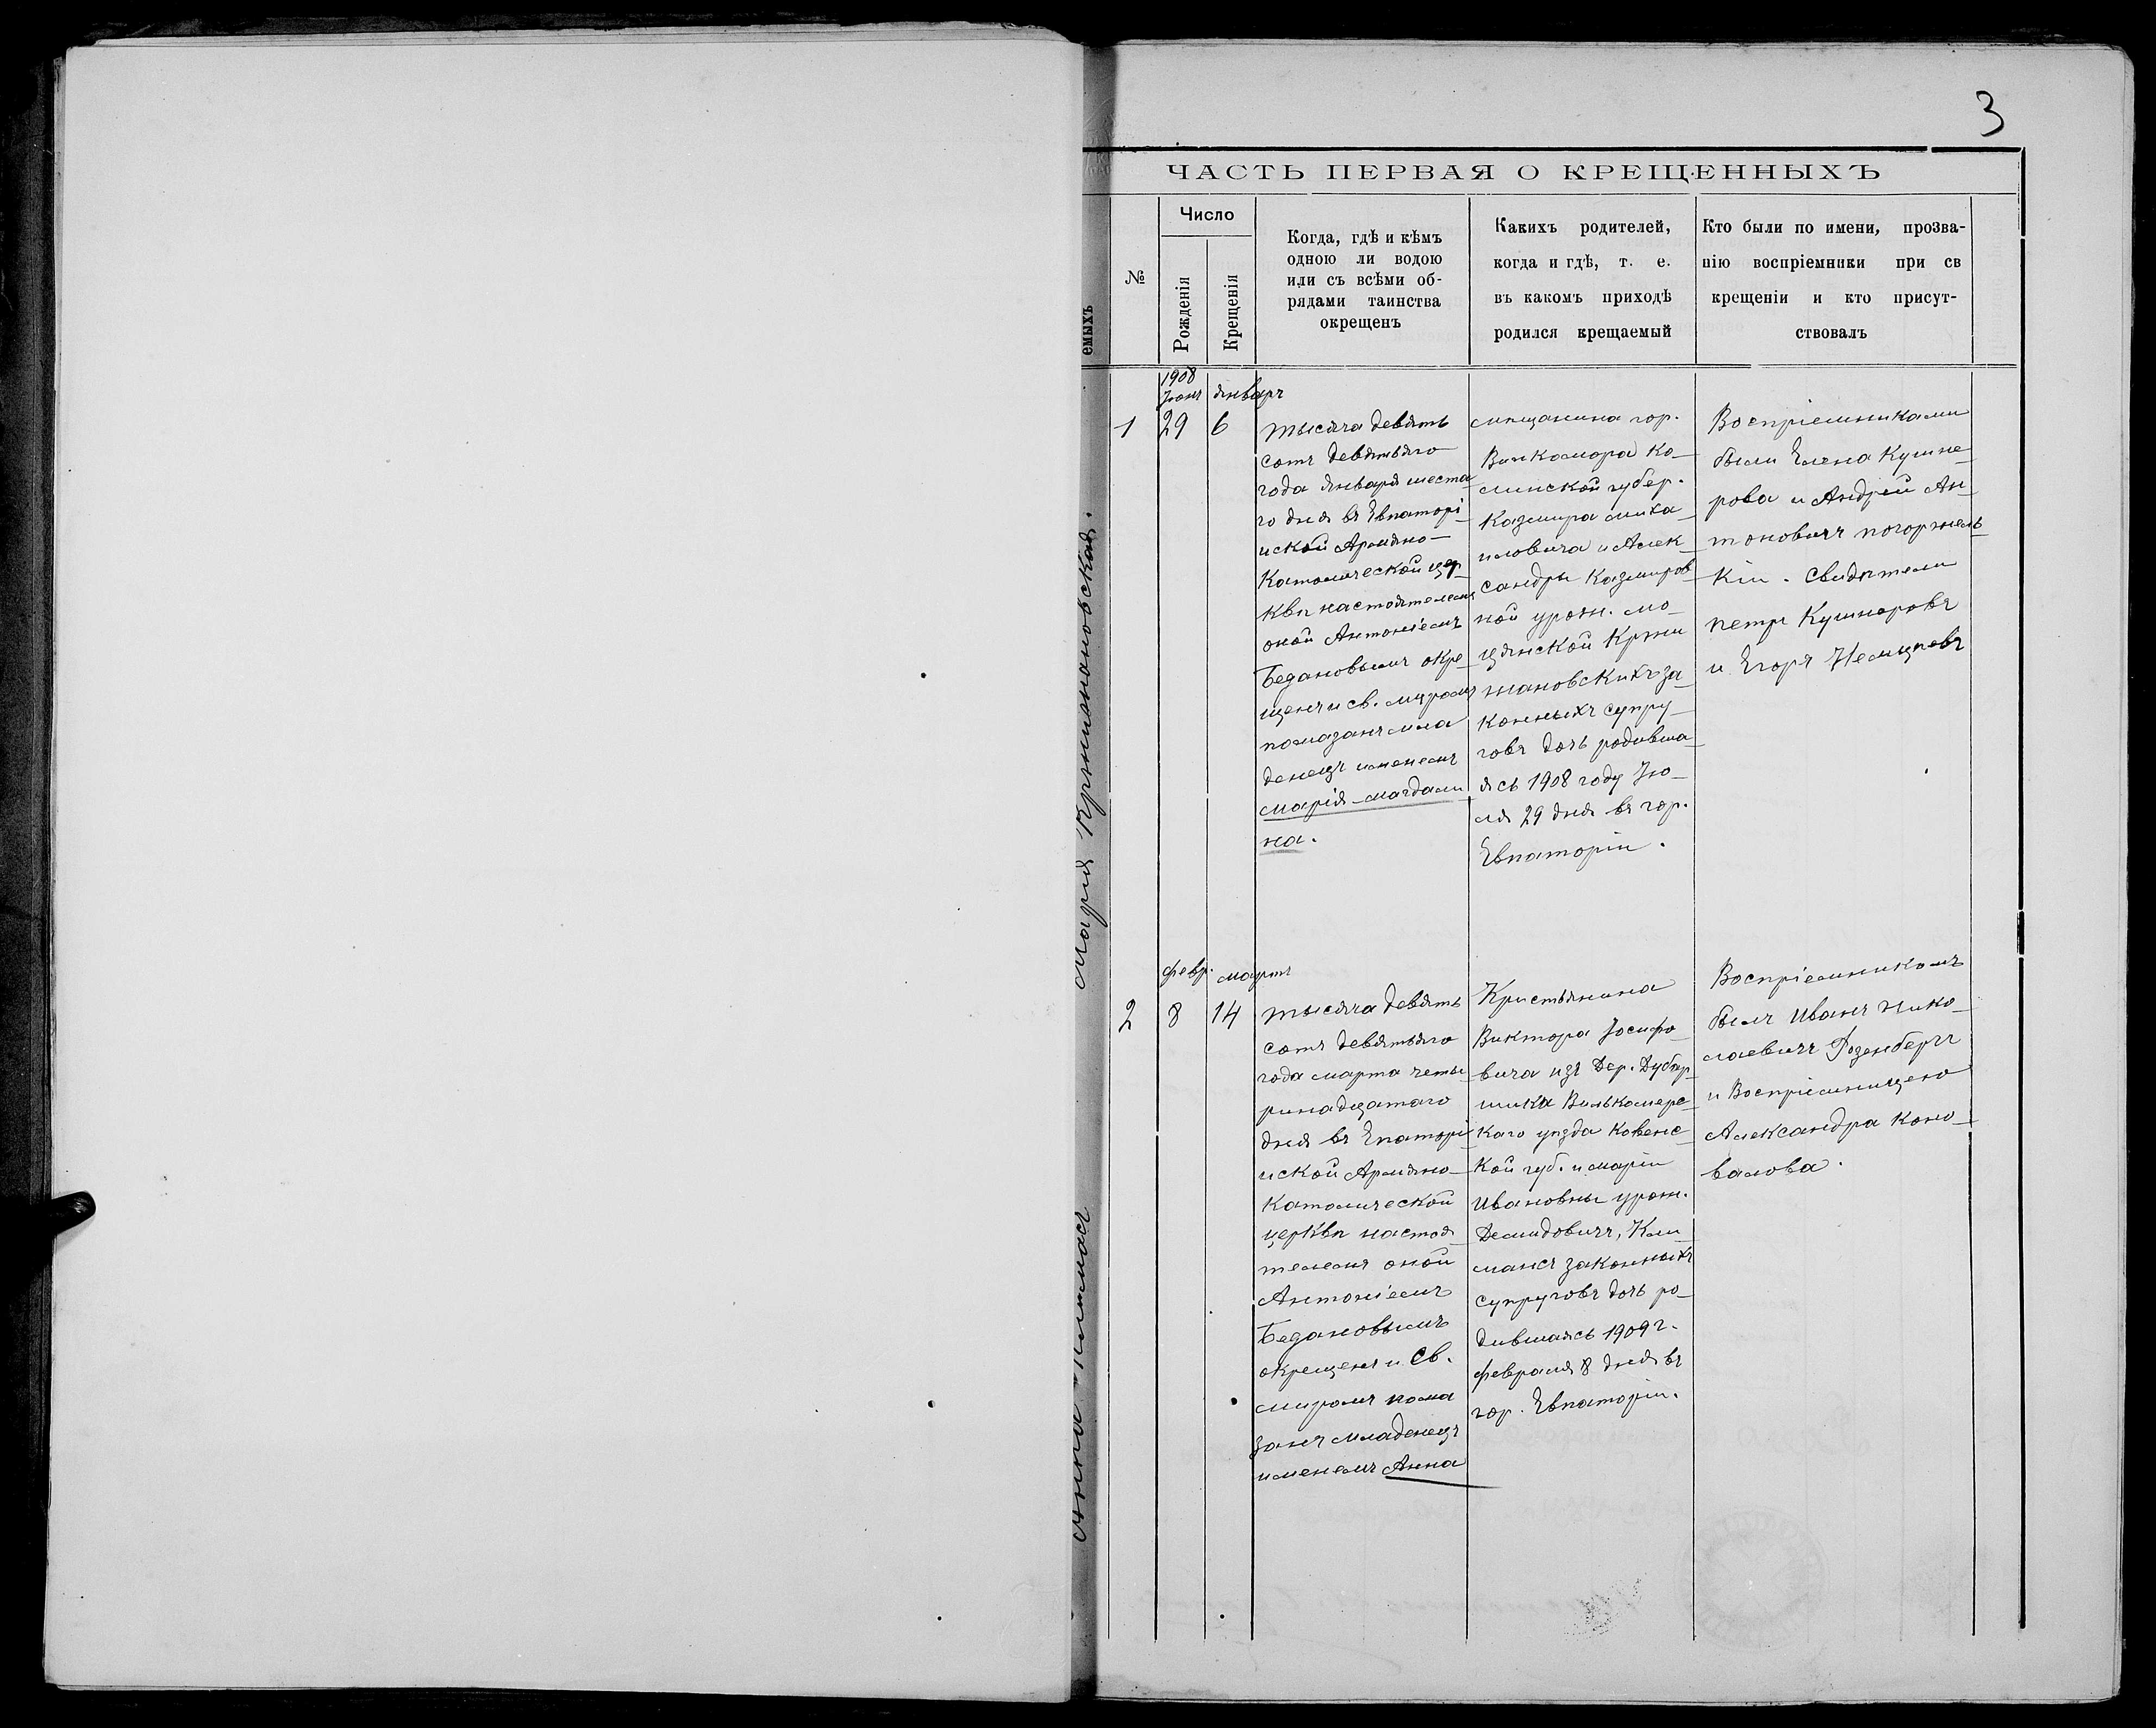 3
ЧАСТЬ ПЕРВАЯ О КРЕЩЕННЫХЪ
емыхъ
№
Число
Рожденія
Крещенія
Когда, гдѣ и кѣмъ
одною ли водою
или съ всѣми об-
рядами таинства
окрещенъ
Какихъ родителей,
когда и гдѣ, т. е.
въ какомъ приходѣ
родился крещаемый
Кто были по имени, прозва-
нію воспріемники при св
крещеніи и кто присут-
ствовалъ
Марія Кржижановская.
1908
январъ
1
29
6
тысяча девять
сотъ девятьяго
года января шеста
го дня въ Евпаторі_
иской Армяно-
Католической цер_
квѣ настоятелемъ
оной Антоніемъ
Бедановымъ окре_
щенъ и св. мѵромъ
помазанъ мла
денецъ именемъ
марія-магдали
на.
мѣщанина гор.
Ко_
губер.
Казмира миха_
иловича и Алек_
сандры Казмиров_
ной урож. мо_
Кржи
жановскихъ за_
конныхъ супру_
говъ дочь родивша_
ясь 1908 году Ію_
ля 29 дня въ гор.
Евпаторіи.
Воспріемниками
были Елена Кушне_
рова и Андрей Ан_
тоновичъ погоржель_
кіи. Свидѣтели
петръ Кушнеровъ
и Егоръ
Анна Климасъ
февр.
мартъ
2
8
14
тысяча девять
сотъ девятьяго
года марта четы_
ринадцатаго
дня въ Епаторі
иской Армяно_
Католической
церквѣ настоя_
телемъ оной
Антоніемъ
Бедановымъ
окрещенъ и Св.
миромъ пома
занъ младенецъ
именемъ Анна
Кристьянина
Виктора Іосифо_
вича изъ Дер.
Вилькомерс_
каго уѣзда Ковенс_
кой губ. и маріи
Ивановны урож.
Демидовичъ, Кли_
мансъ законныхъ
супруговъ дочь ро_
дившаясь 1909 г.
февраля 8 дня въ
гор. Евпаторіи.
Воспріемникомъ
былъ Иванъ Нико_
лаевичъ Розенбергъ
и Воспріемницею
Александра Коно_
валова.